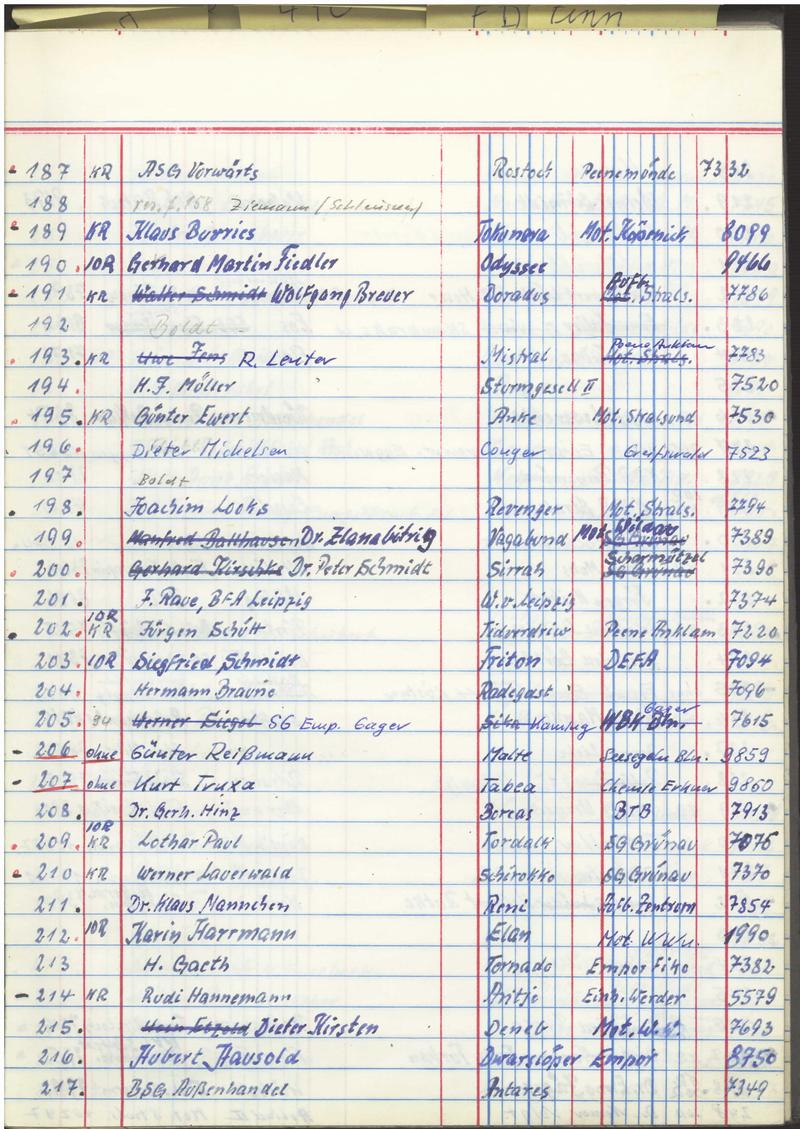 187 KR ASG Vorwärts Rostock Peenemünde 7332
188 res. f. 168 Ziemann
189 KR Klaus Burries Tokunora Mot. Köpenick 8099
190. 10R Gerhard Martin Fiedler Odyssee 9466
191 KR Walter Schmidt Wolfgang Breuer Doradus Mot. Aufb. Strals. 7786
192 Boldt
193. KR Uwe Jens R. Leuter Mistral Mot. Strals. Peene Anklam 7783
194. H.F. Möller Sturmgesell II 7520
195. KR Günter Ewert Anke Mot. Stralsund 7530
196. Dieter Michelsen Couger Greifswald 7523
197 Boldt
198. Joachim Looks Revenger Mot. Strals. 7794
199. Manfred Balthausen Dr. Zlanabitnig Vagabund Mot. Wildau SG Grünau 7389
200. Gerhard Kirschke Dr. Peter Schmidt Sirrah Scharmützel SG Grünau 7396
201. F. Raue, BFA Leipzig W.v. Leipzig 7374
202. 10R KR Jürgen Schött Tidverdriw Peene Anklam 7220
203. 10R Siegfried Schmidt Triton DEFA 7094
204. Hermann Braune Radegast 7096
205. 94 Werner Siegel SG Emp. Gager Kaming WBK Bln. Gager 7615
206 ohne Günter Reißmann Malte Seesegeln Bln. 9859
207 ohne Kurt Truxa Tabea Chemie Erkner 9860
208. Dr. Gerh. Hinz Boreas BTB 7913
209. 10R KR Lothar Paul Tordalk SG Grünau 7075
210 KR Werner Lauerwald Schirokko SG Grünau 7370
211. Dr. Klaus Mannchen Reni Aufb. Zentrum 7854
212. 10R Karin Harrmann Elan Mot. WWu. 1990
213 H. Gaeth Tornado Empor Fiko 7382
214 KR Rudi Hannemann Antje Einh. Werder 5579
215. Dieter Kirsten Deneb Mot. W.W. 7693
216. Hubert Hausold Dwarslöper Empor 8750
217. BSG Außenhandel Antares 7349